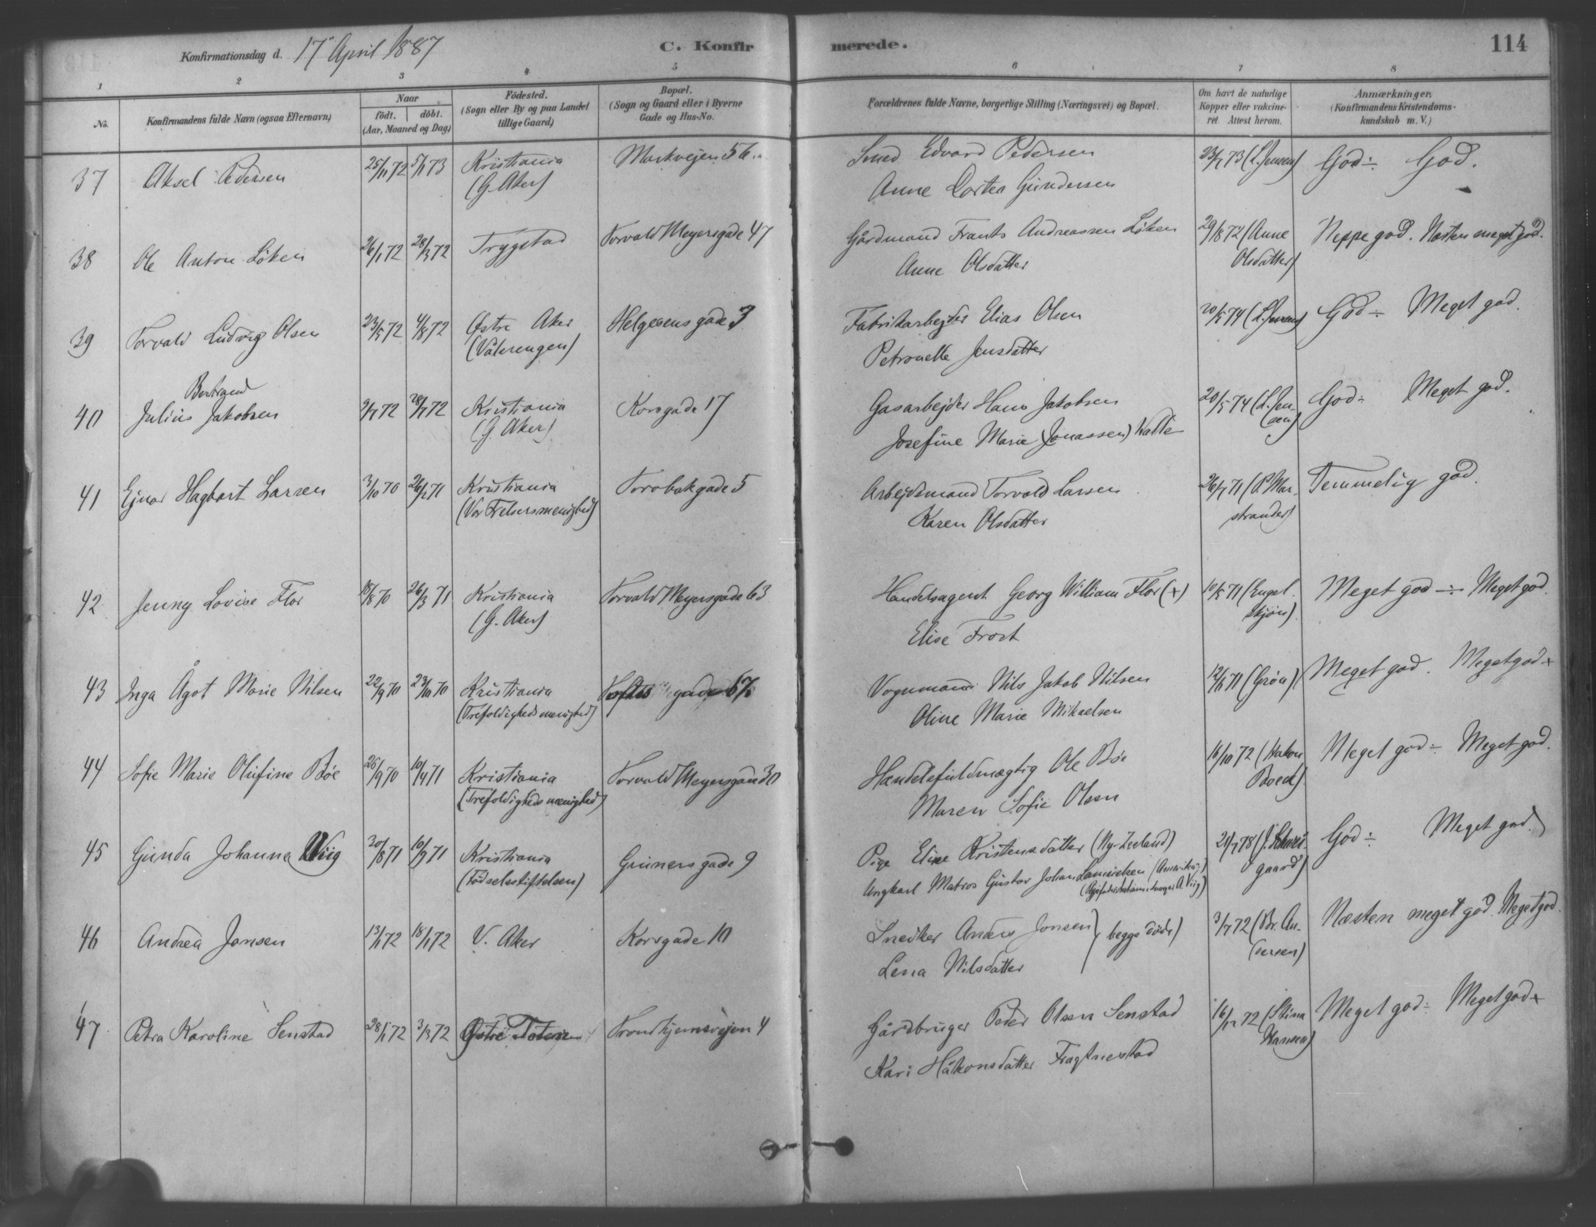 Konfirmationsdag d. 17 April 1887
C. Konfirmerede.
114
1 2 3 4 5 6 7 8
No.
Konfirmandens fulde Navn (ogsaa Efternavn)
Naar
født. døbt.
(Aar, Maaned og Dag)
Fødested.
(Sogn eller By og paa Landet
tillige Gaard)
Bopæl.
(Sogn og Gaard eller i Byerne
Gade og Hus-No.
Forældrenes fulde Navne, borgerlige Stilling (Næringsvei) og Bopæl.
Om havt de naturlige
Kopper eller vakcine-
ret Attest herom.
Anmærkninger.
(Konfirmandens Kristendoms-
kundskab m. V.)
37 Aksel Pedersen 25/11 72 5/1 73 Kristiania Markvejen 56 Smed Edvard Pedersen 73 (L. Jensen) God ÷ God.
(G. Aker) Anne Dortea Gundersen
38 Ole Anton Løken 26/1 72 28/3 72 Trygstad Torvald Meyersgade 47 Gårdmand Frants Andreassen Løken 29/8 72 (Anne Neppe god. Næsten meget god.
Anne Olsdatter Olsdatter)
39 Torvald Ludvig Olsen 23/5 72 4/8 72 Østre Aker Helgesens gade 3 Fabrikarbejder Elias Olsen 20/5 74 (L. Jensen) God ÷ Meget god.
(Vålerengen) Petronelle Jensdatter
Bertrand
40 Julius Jakobsen 72 28/7 72 Kristiania Korsgade 17 Gasarbejder Hans Jakobsen 20/5 74 (L. Jen- God ÷ Meget god.
(G. Aker) Josefine Marie (Jonassen) sen)
41 Ejnar Hagbart Larsen 3/10 70 26/2 71 Kristiania gade 5 Arbejdsmand Torvald Larsen 26/7 71 (P. Mar- Temmelig god.
(Vor Frelsersmenighed) Karen Olsdatter strander)
42 Jenny Lovise Flor 70 26/3 71 Kristiania Torvald Meyersgade 63 Handelsagent Georg William Flor (+) 10/5 71 (Engel- Meget god ÷ Meget god.
(G. Aker) Elise Frost skjøn)
43 Inga Ågot Marie Nilsen 22/9 70 23/10 70 Kristiania gade Vognmand Nils Jakob Nilsen 71 (Grøn) Meget god. Meget god +
(Trefoldighedsmenighed) Oline Marie Mikaelsen
44 Sofie Marie Olufine Bøe 25/9 70 10/4 71 Kristiania Torvald Meyersgade 30 Handelsfuldmægtig Ole Bøe 16/10 72 (Hakon Meget god ÷ Meget god.
(Trefoldighedsmenighed) Maren Sofie Olsen Boeck)
45 Gunda Johanna Wiig 20/8 71 10/9 71 Kristiania Grüners gade 9 Pige Elise Kristensdatter (Ny-Zeeland) 78 (J. God ÷ Meget god.
(Fødselsstiftelsen) Ungkarl Matros Gustav Johan (Amerika) gaard)
46 Andrea Jensen 13/1 72 18/1 72 V. Aker Korsgade 10 Snedker Anders Jensen) begge døde) 3/7 72 (Br. An- Næsten meget god. Meget god.
Lena Nilsdatter dersen)
47 Petra Karoline Senstad 28/1 72 3/3 72 Østre Toten Trondhjemsvejen 4 Gårdbruger Peder Olsen Senstad 16/12 72 (Stina Meget god ÷ Meget god +
Kari Håkonsdatter Hansen)